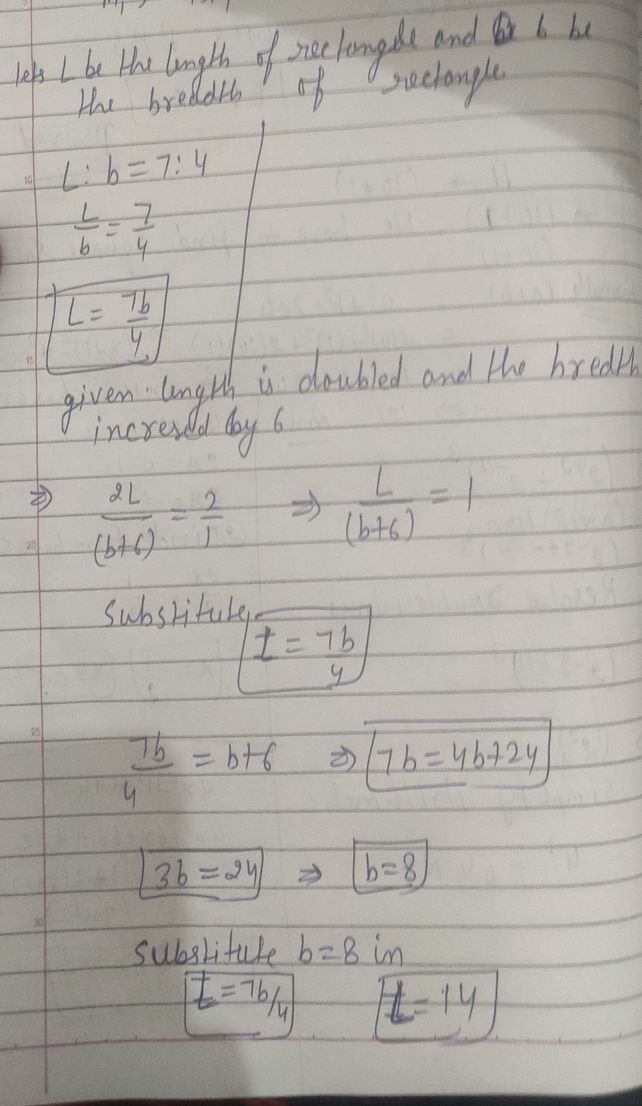 lets L be the length of rectangle and b be
the breadth of rectangle.
L : b = 7 : 4
L/b = 7/4
L = 7b/4
given length is doubled and the bredth
incresed by 6
⇒ 2L/(b+6) = 2/1 ⇒ L/(b+6) = 1
Substitute
L = 7b/4
7b/4 = b+6 ⇒ 7b = 4b+24
3b = 24 ⇒ b = 8
substitute b=8 in
L = 7b/4 L = 14